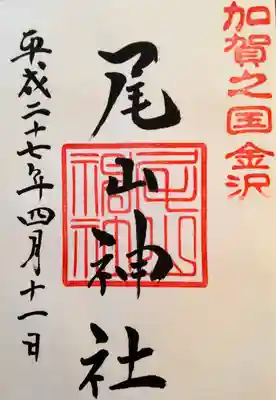 加賀之国金沢
尾山神社
平成二十七年四月十一日
尾山神社